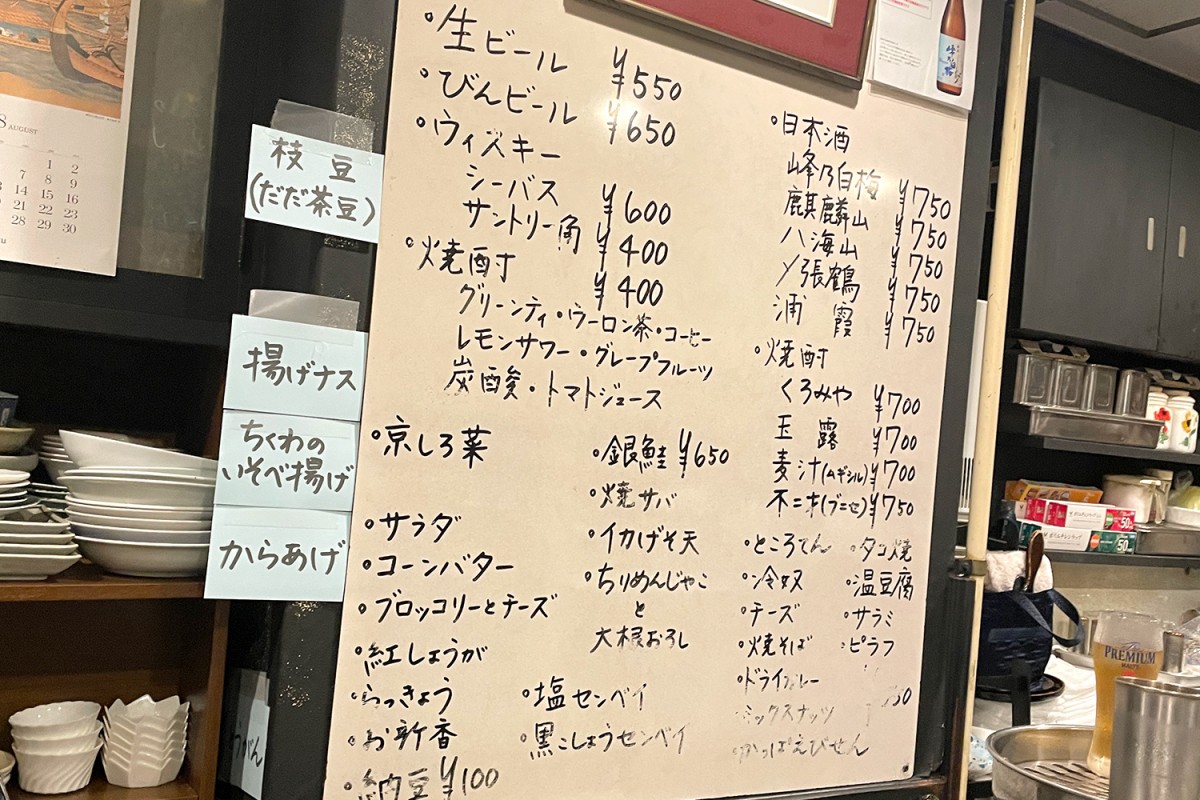 8 AUGUST
1 2
7 8 9
14 15 16
21 22 23
28 29 30
枝豆
(だだ茶豆)
揚げナス
ちくわの
いそべ揚げ
からあげ
・生ビール ¥550
・びんビール ¥650
・ウィズキー
シーバス ¥600
サントリー角 ¥400
・焼酎 ¥400
グリーンティ・ウーロン茶・コーヒー
レモンサワー・グレープフルーツ
炭酸・トマトジュース
・京しろ菜
・サラダ
・コーンバター
・ブロッコリーとチーズ
・紅しょうが
・らっきょう
・お新香
・納豆 ¥100
・銀鮭 ¥650
・焼サバ
・イカげそ天
・ちりめんじゃこ
と
大根おろし
・塩センベイ
・黒こしょうセンベイ
・日本酒
峰乃白梅 ¥750
麒麟山 ¥750
八海山 ¥750
〆張鶴 ¥750
浦霞 ¥750
・焼酎
くろみや ¥700
玉露 ¥700
麦汁(ムギシル) ¥700
不二才(ブニセ) ¥750
・ところてん ・タコ焼
・冷奴 ・温豆腐
・チーズ ・サラミ
・焼そば ・ピラフ
・ドライカレー
ミックスナッツ
かっぱえびせん
PREMIUM
MALT'S